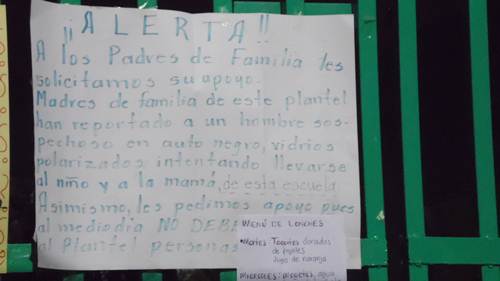 ¡¡ALERTA!!
A los Padres de Familia les
solicitamos su apoyo.
Madres de familia de este plantel
han reportado a un hombre sos-
pechoso en auto negro, vidrios
polarizados intentando llevarse
al niño y a la mamá, de esta escuela
Asimismo, les pedimos apoyo pues
al mediodia NO DEBE
al Plantel personas
MENÚ DE LONCHES
•Martes: Taquitos dorados
de frijoles
Jugo de naranja
MIERCOLES: agua